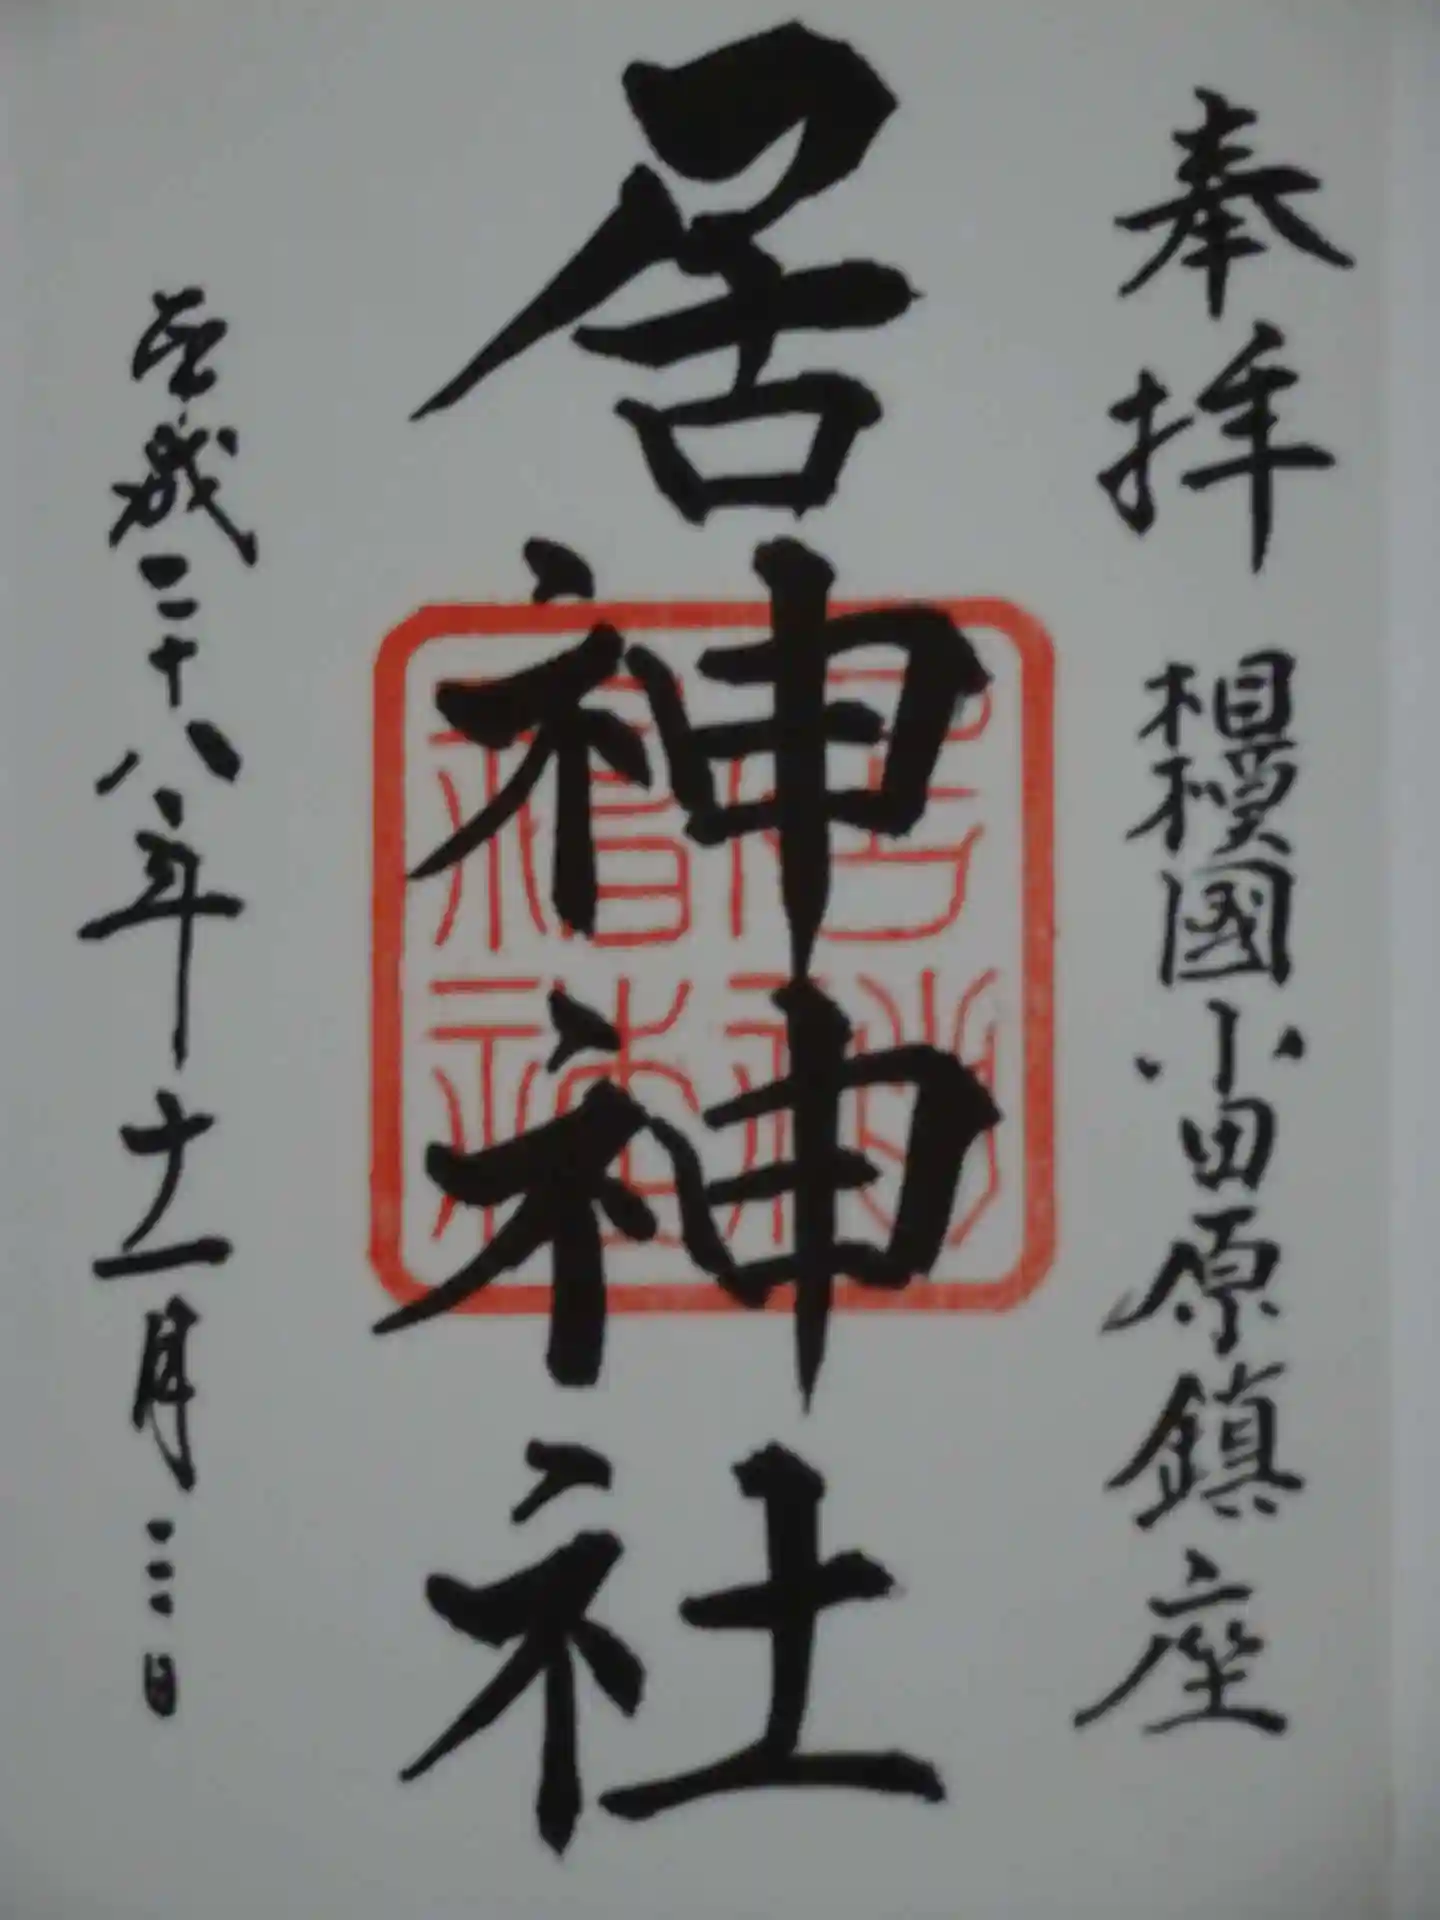 奉拝 相模國小田原鎮座
居神神社
居神神社
平成二十八年十一月三日